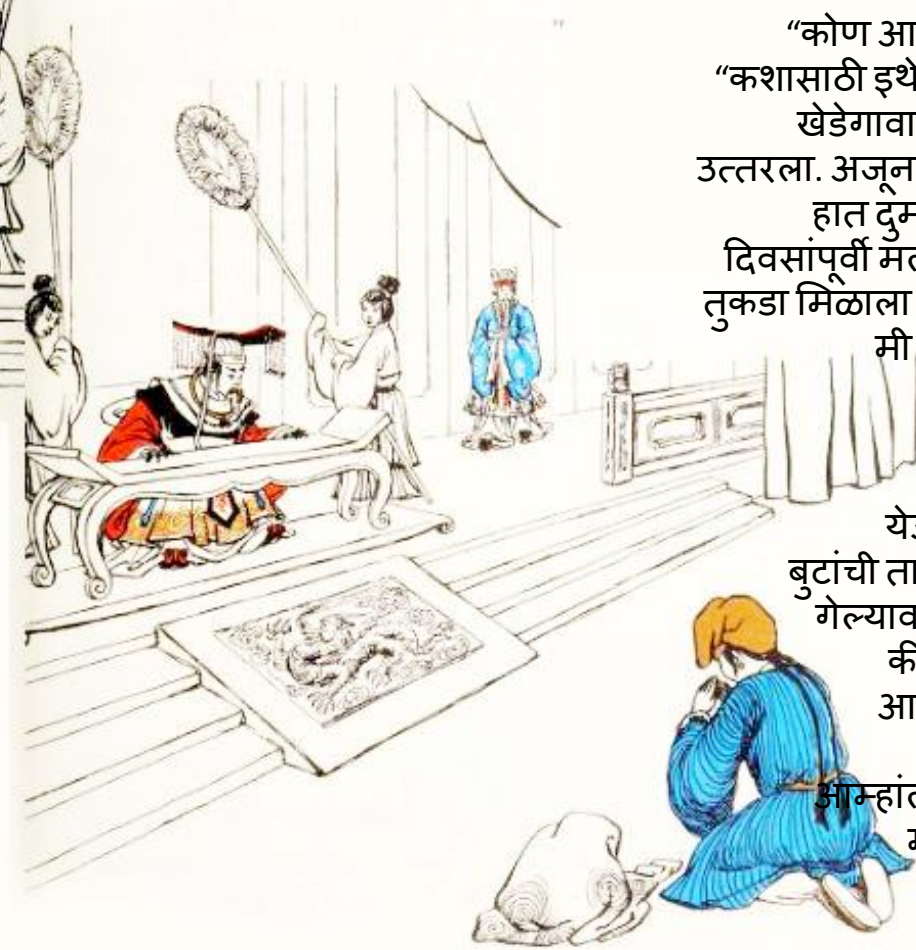 “कोण आ
“कशासाठी इथे
खेडेगावा
उत्तरला. अजून
हात दुम
दिवसांपूर्वी मत
तुकडा मिळाला
मी
बुटांची ता
गेल्याव
की
आ
आम्हांत